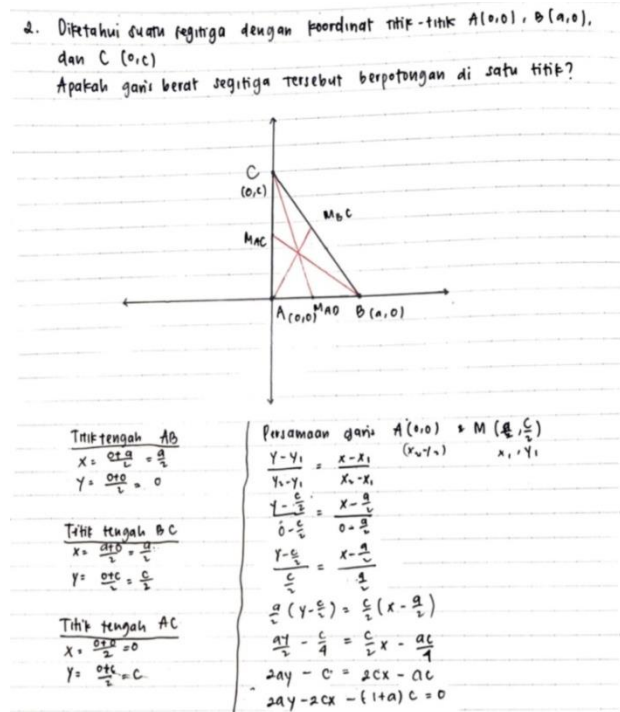 2. Diketahui suatu segitiga dengan koordinat titik-titik A(0,0), B(a,0),
dan C (0,c)
Apakah garis berat segitiga tersebut berpotongan di satu titik?
C
(0,c)
M_BC
M_AC
A(0,0) M_AO B(a,0)
Titik tengah AB
x = 0+a/2 = a/2
y = 0+0/2 = 0
Titik tengah BC
x = a+0/2 = a/2
y = 0+c/2 = c/2
Titik tengah AC
x = 0+0/2 = 0
y = 0+c/2 = C
Persamaan garis A(0,0) & M (a/2, c/2)
(x₂,y₂) x₁, y₁
y-y₁/y₂-y₁ = x-x₁/x₂-x₁
y-c/2 / 0-c/2 = x-a/2 / 0-a/2
y-c/2 / c/2 = x-a/2 / a/2
a/2 (y-c/2) = c/2 (x-a/2)
ay/2 - c/4 = c/2 x - ac/4
2ay - c = 2cx - ac
2ay - 2cx - (1+a) c = 0